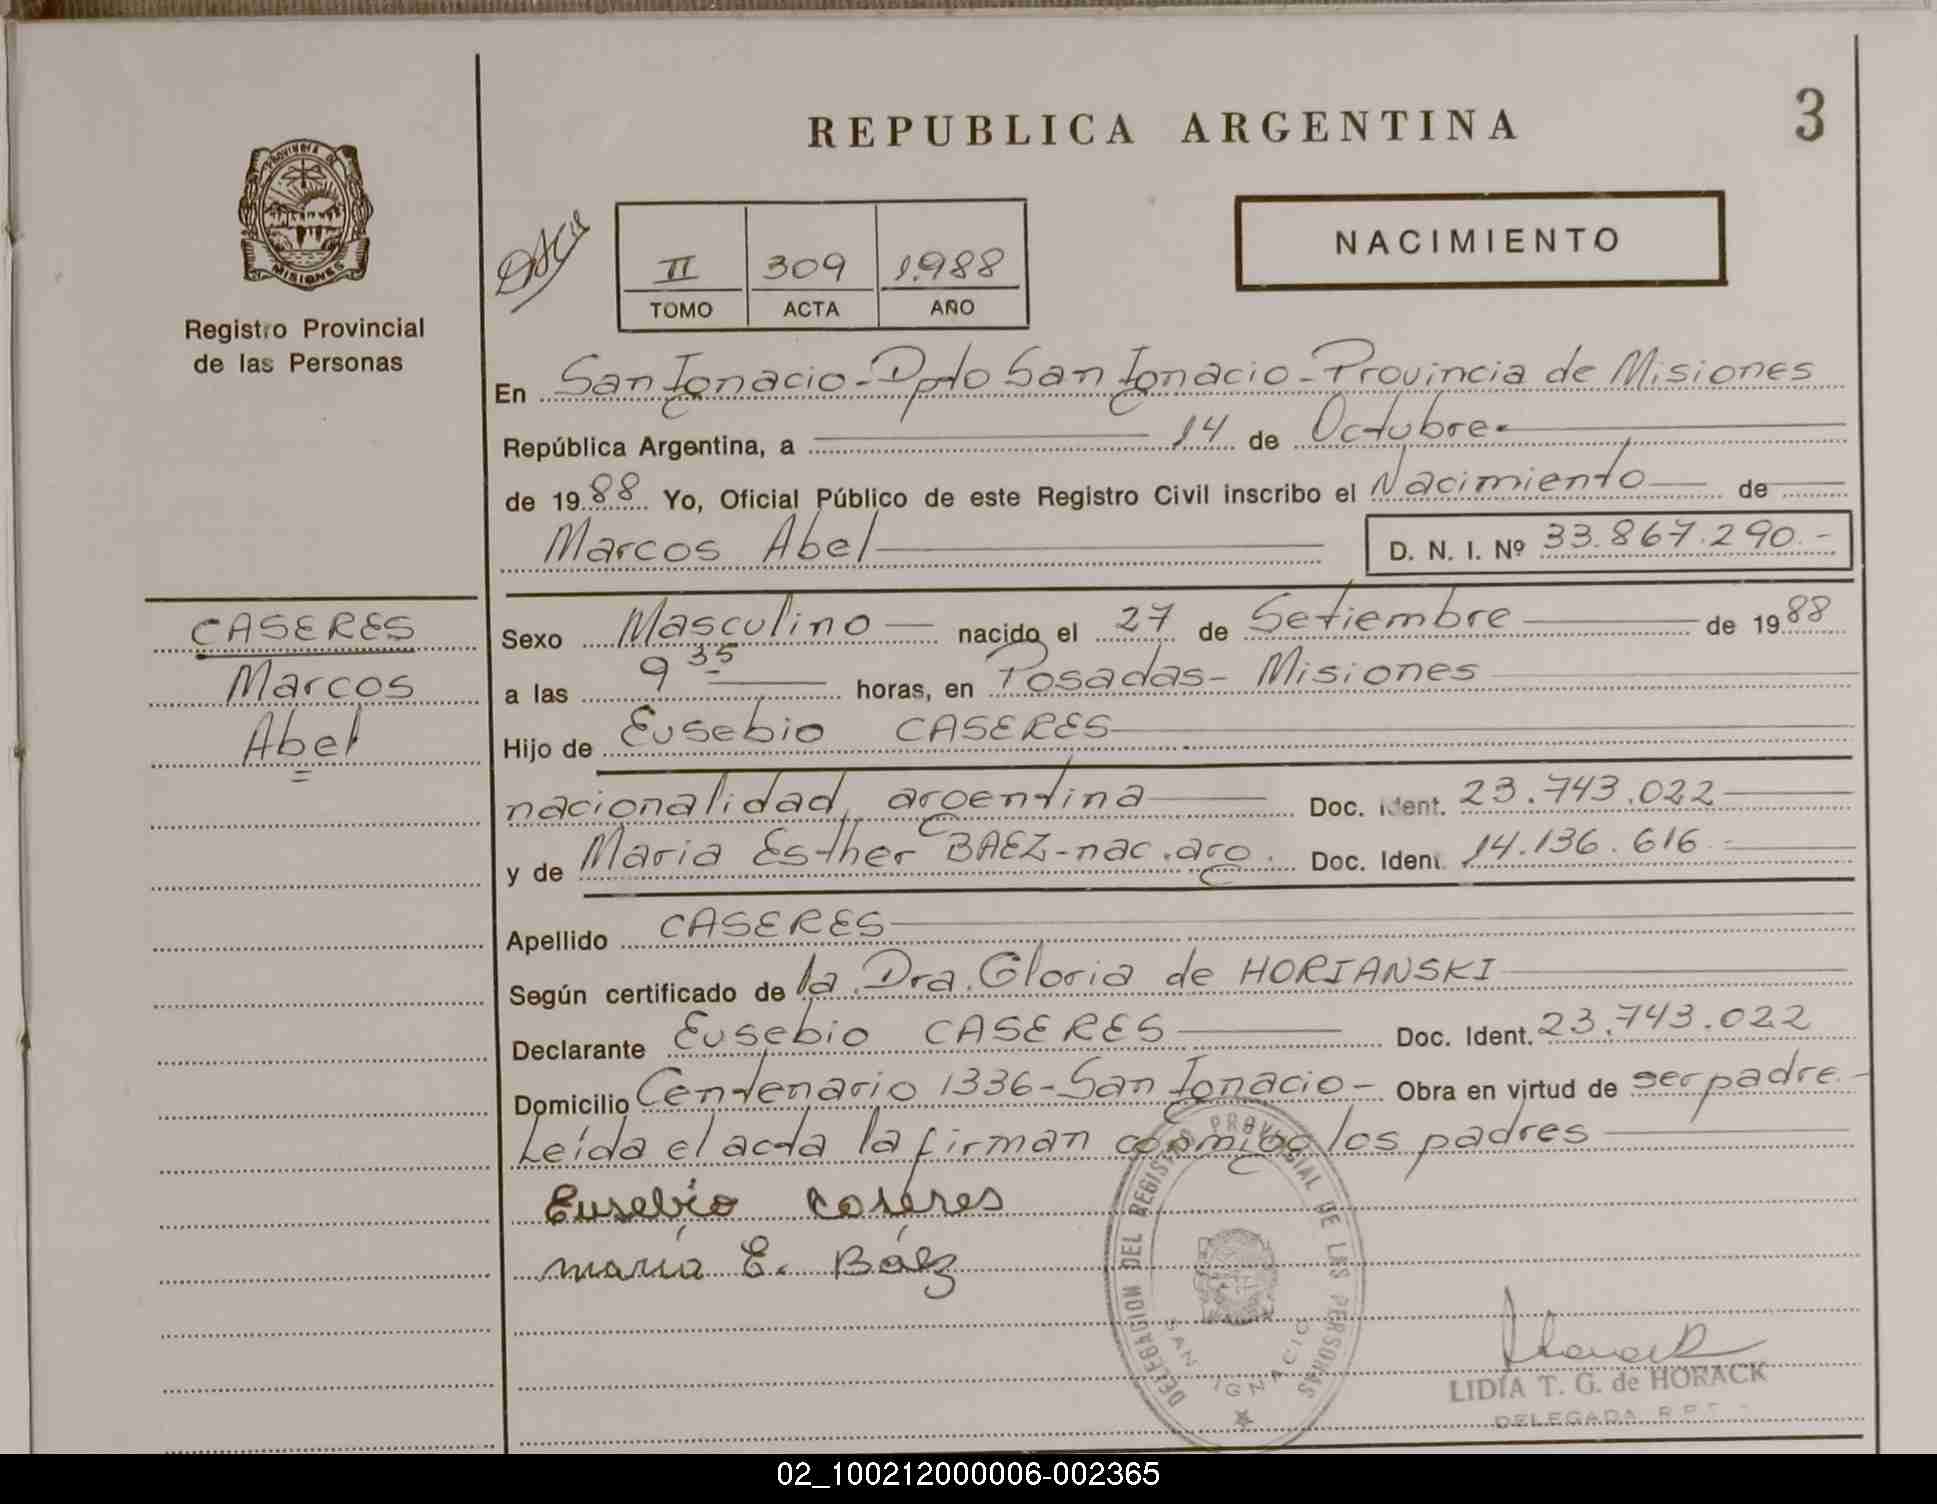 REPUBLICA ARGENTINA
3
PROVINCIA DE
MISIONES
Registro Provincial
de las Personas
II 309 1.988
TOMO ACTA AÑO
NACIMIENTO
En San Ignacio - Dpto San Ignacio - Provincia de Misiones
República Argentina, a 14 de Octubre.
de 1988 Yo, Oficial Público de este Registro Civil inscribo el Nacimiento de
Marcos Abel D. N. I. Nº 33.867.290.-
CASERES
Marcos
Abel
Sexo Masculino nacido el 27 de Setiembre de 1988
a las 9 35 horas, en Posadas - Misiones
Hijo de Eusebio CASERES
nacionalidad, argentina Doc. Ident. 23.743.022
y de Maria Esther BAEZ - nac. arg. Doc. Ident. 14.136.616.-
Apellido CASERES
Según certificado de la Dra. Gloria de HORIANSKI
Declarante Eusebio CASERES Doc. Ident. 23.743.022
Domicilio Centenario 1336 - San Ignacio - Obra en virtud de ser padre.-
Leída el acta la firman conmigo los padres
Eusebio Caseres
maría E. Báez
DELEGACION DEL REGISTRO PROVINCIAL DE LAS PERSONAS
SAN IGNACIO
LIDIA T. G. de HORACK
DELEGADA
02_100212000006-002365